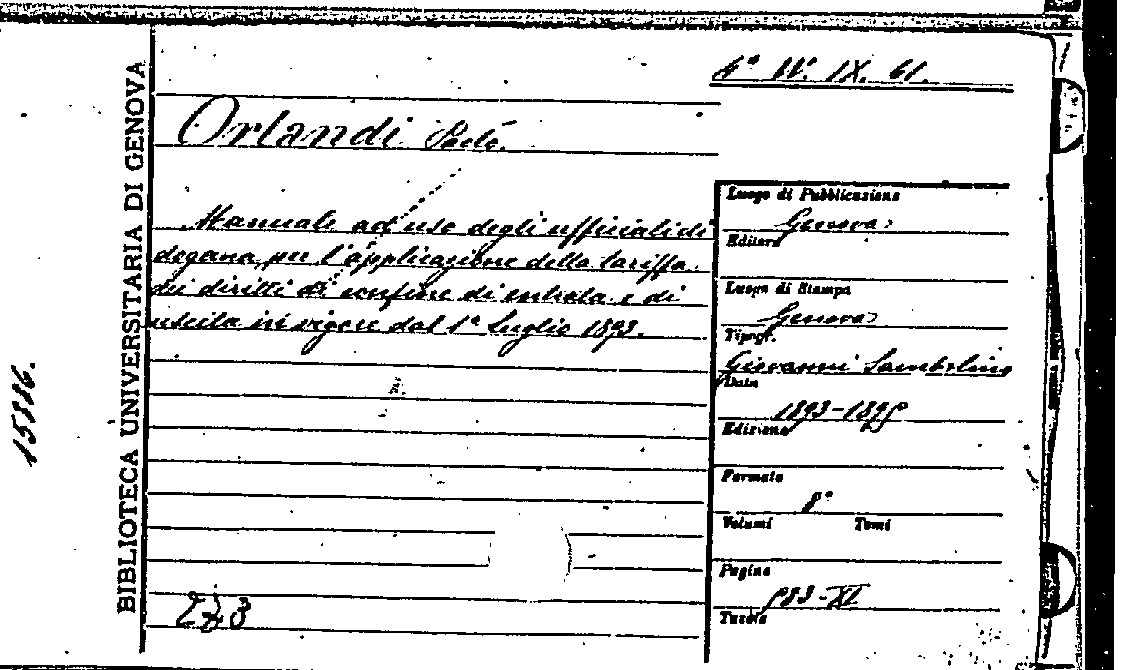 BIBLIOTECA UNIVERSITARIA DI GENOVA
4° W. IX. 61.
Orlandi
Manuale ad uso degli ufficiali di
dogana per l'applicazione della tariffa
dei diritti di confine di entrata e di
uscita in vigore dal 1° Luglio 1893.
Luogo di Pubblicazione
Genova
Editore
Luogo di Stampa
Genova
Tipogr.
Giovanni Sambolino
Data
1893-1895
Edizione
Formato
8°
Volumi Tomi
Pagine
583-XI
Tavole
15386.